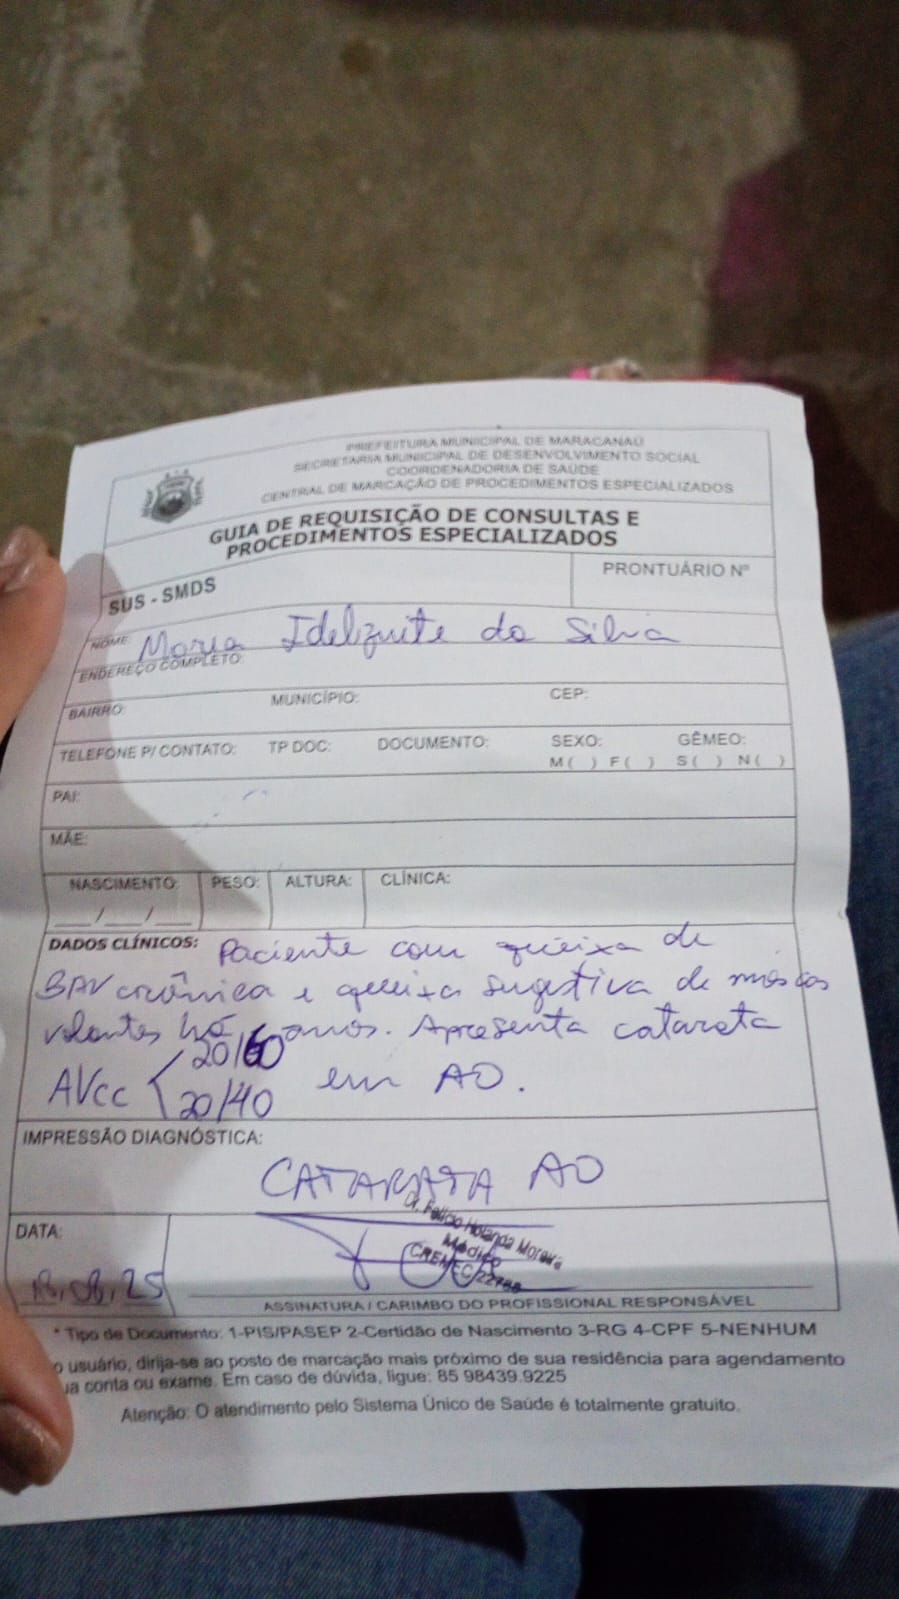 PREFEITURA MUNICIPAL DE MARACANAÚ
SECRETARIA MUNICIPAL DE DESENVOLVIMENTO SOCIAL
COORDENADORIA DE SAÚDE
CENTRAL DE MARCAÇÃO DE PROCEDIMENTOS ESPECIALIZADOS
GUIA DE REQUISIÇÃO DE CONSULTAS E
PROCEDIMENTOS ESPECIALIZADOS
SUS - SMDS
PRONTUÁRIO Nº
NOME: Maria Idelzuite da Silva
ENDEREÇO COMPLETO:
BAIRRO: MUNICÍPIO: CEP:
TELEFONE P/ CONTATO: TP DOC: DOCUMENTO: SEXO: GÊMEO:
M ( ) F ( ) S ( ) N ( )
PAI:
MÃE:
NASCIMENTO: PESO: ALTURA: CLÍNICA:
___/___/___
DADOS CLÍNICOS: Paciente com queixa de
BAV crônica e queixa sugestiva de moscas
volantes há anos. Apresenta catarata
AVcc 20/60 em AO.
20/40
IMPRESSÃO DIAGNÓSTICA:
CATARATA AO
Dr. Felício Holanda Moreira
Médico
CREMEC
DATA:
08, 25
ASSINATURA / CARIMBO DO PROFISSIONAL RESPONSÁVEL
* Tipo de Documento: 1-PIS/PASEP 2-Certidão de Nascimento 3-RG 4-CPF 5-NENHUM
o usuário, dirija-se ao posto de marcação mais próximo de sua residência para agendamento
ua conta ou exame. Em caso de dúvida, ligue: 85 98439.9225
Atenção: O atendimento pelo Sistema Único de Saúde é totalmente gratuito.